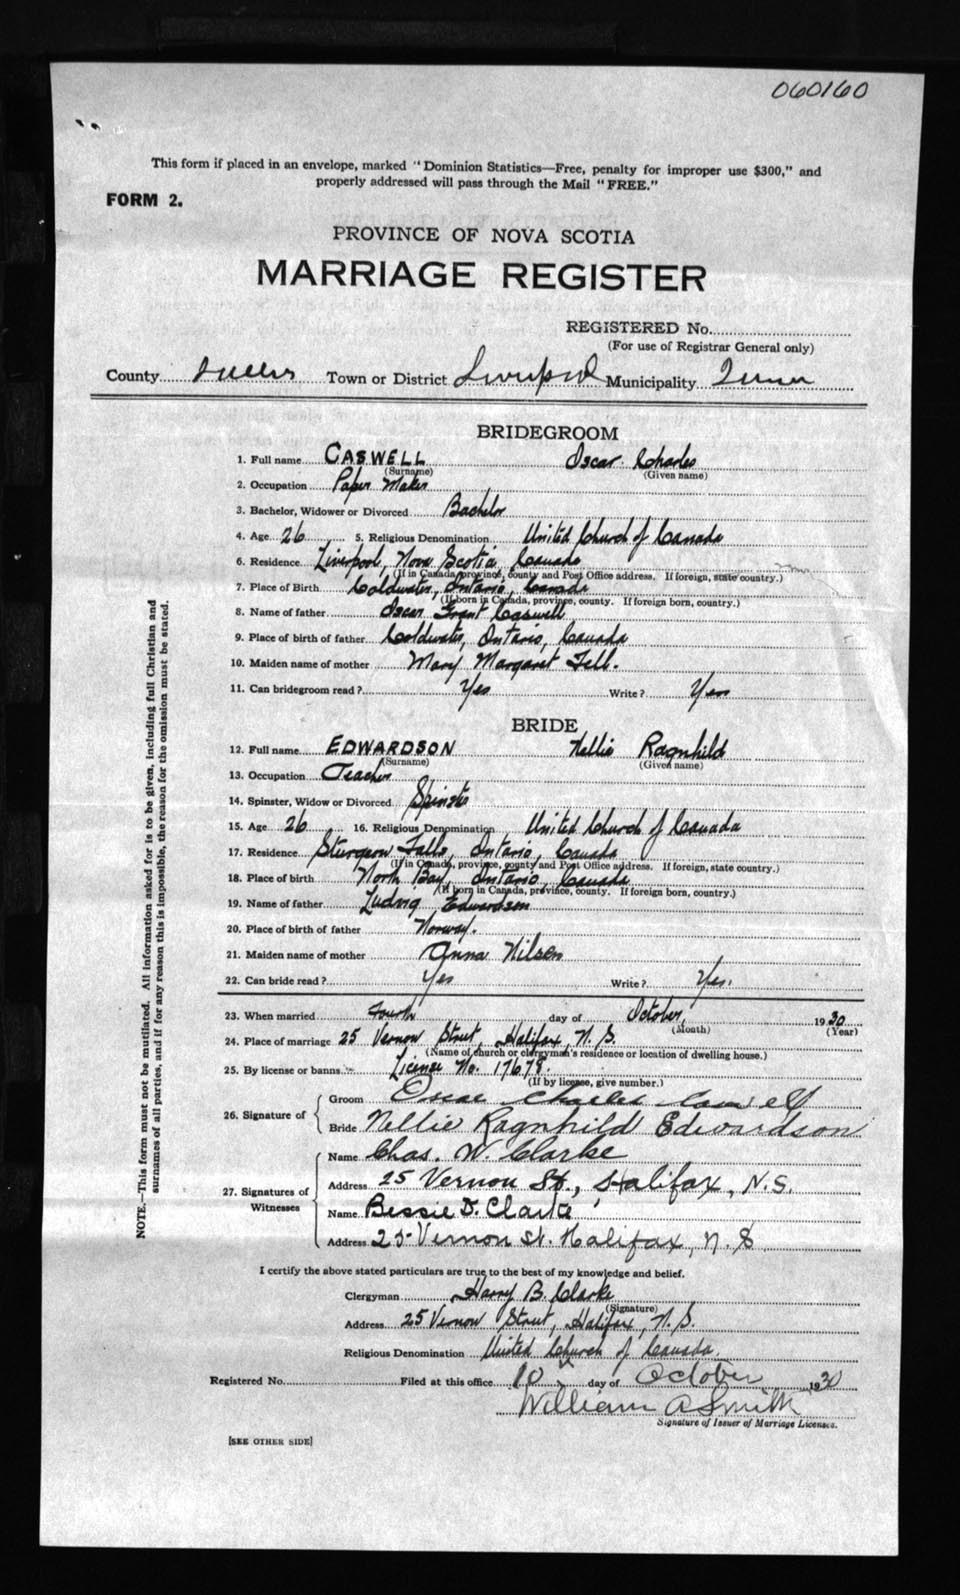 060160
This form if placed in an envelope, marked "Dominion Statistics—Free, penalty for improper use $300," and
properly addressed will pass through the Mail "FREE."
FORM 2.
PROVINCE OF NOVA SCOTIA
MARRIAGE REGISTER
REGISTERED No.
(For use of Registrar General only)
County Queens Town or District Liverpool Municipality
BRIDEGROOM
1. Full name CASWELL Oscar Charles
(Surname) (Given name)
2. Occupation Paper Maker
3. Bachelor, Widower or Divorced Bachelor
4. Age 26 5. Religious Denomination United Church of Canada
6. Residence Liverpool, Nova Scotia, Canada
(If in Canada, province, county and Post Office address. If foreign, state country.)
7. Place of Birth Coldwater, Ontario, Canada
(If born in Canada, province, county. If foreign born, country.)
8. Name of father Oscar Grant Caswell
9. Place of birth of father Coldwater, Ontario, Canada
10. Maiden name of mother Mary Margaret Fell.
11. Can bridegroom read? Yes Write? Yes
BRIDE
12. Full name EDWARDSON Nellie Ragnhild
(Surname) (Given name)
13. Occupation Teacher
14. Spinster, Widow or Divorced Spinster
15. Age 26 16. Religious Denomination United Church of Canada
17. Residence Sturgeon Falls, Ontario, Canada
(If in Canada, province, county and Post Office address. If foreign, state country.)
18. Place of birth North Bay, Ontario, Canada
(If born in Canada, province, county. If foreign born, country.)
19. Name of father Ludvig Edwardson
20. Place of birth of father Norway.
21. Maiden name of mother Anna Nilsen
22. Can bride read? Yes Write? Yes.
23. When married Fourth day of October, 1930
(Month) (Year)
24. Place of marriage 25 Vernon Street, Halifax, N.S.
(Name of church or clergyman's residence or location of dwelling house.)
25. By license or banns License No. 17678.
(If by license, give number.)
26. Signature of
Groom Oscar Charles Caswell
Bride Nellie Ragnhild Edwardson
27. Signatures of Witnesses
Name Chas. W. Clarke
Address 25 Vernon St., Halifax, N.S.
Name Bessie D. Clarke
Address 25 Vernon St. Halifax, N.S
I certify the above stated particulars are true to the best of my knowledge and belief.
Clergyman Harry B. Clarke
(Signature)
Address 25 Vernon Street, Halifax, N.S.
Religious Denomination United Church of Canada.
Registered No. Filed at this office 10 day of October 1930
William A Smith
Signature of Issuer of Marriage Licenses.
[SEE OTHER SIDE]
NOTE.—This form must not be mutilated. All information asked for is to be given, including full Christian and
surnames of all parties, and if for any reason this is impossible, the reason for the omission must be stated.